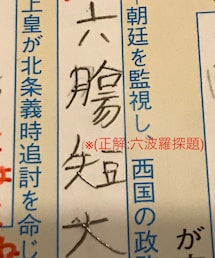 が
朝廷を監視し、西国の政
※(正解:六波羅探題)
六腸短大
上皇が北条義時追討を命じ